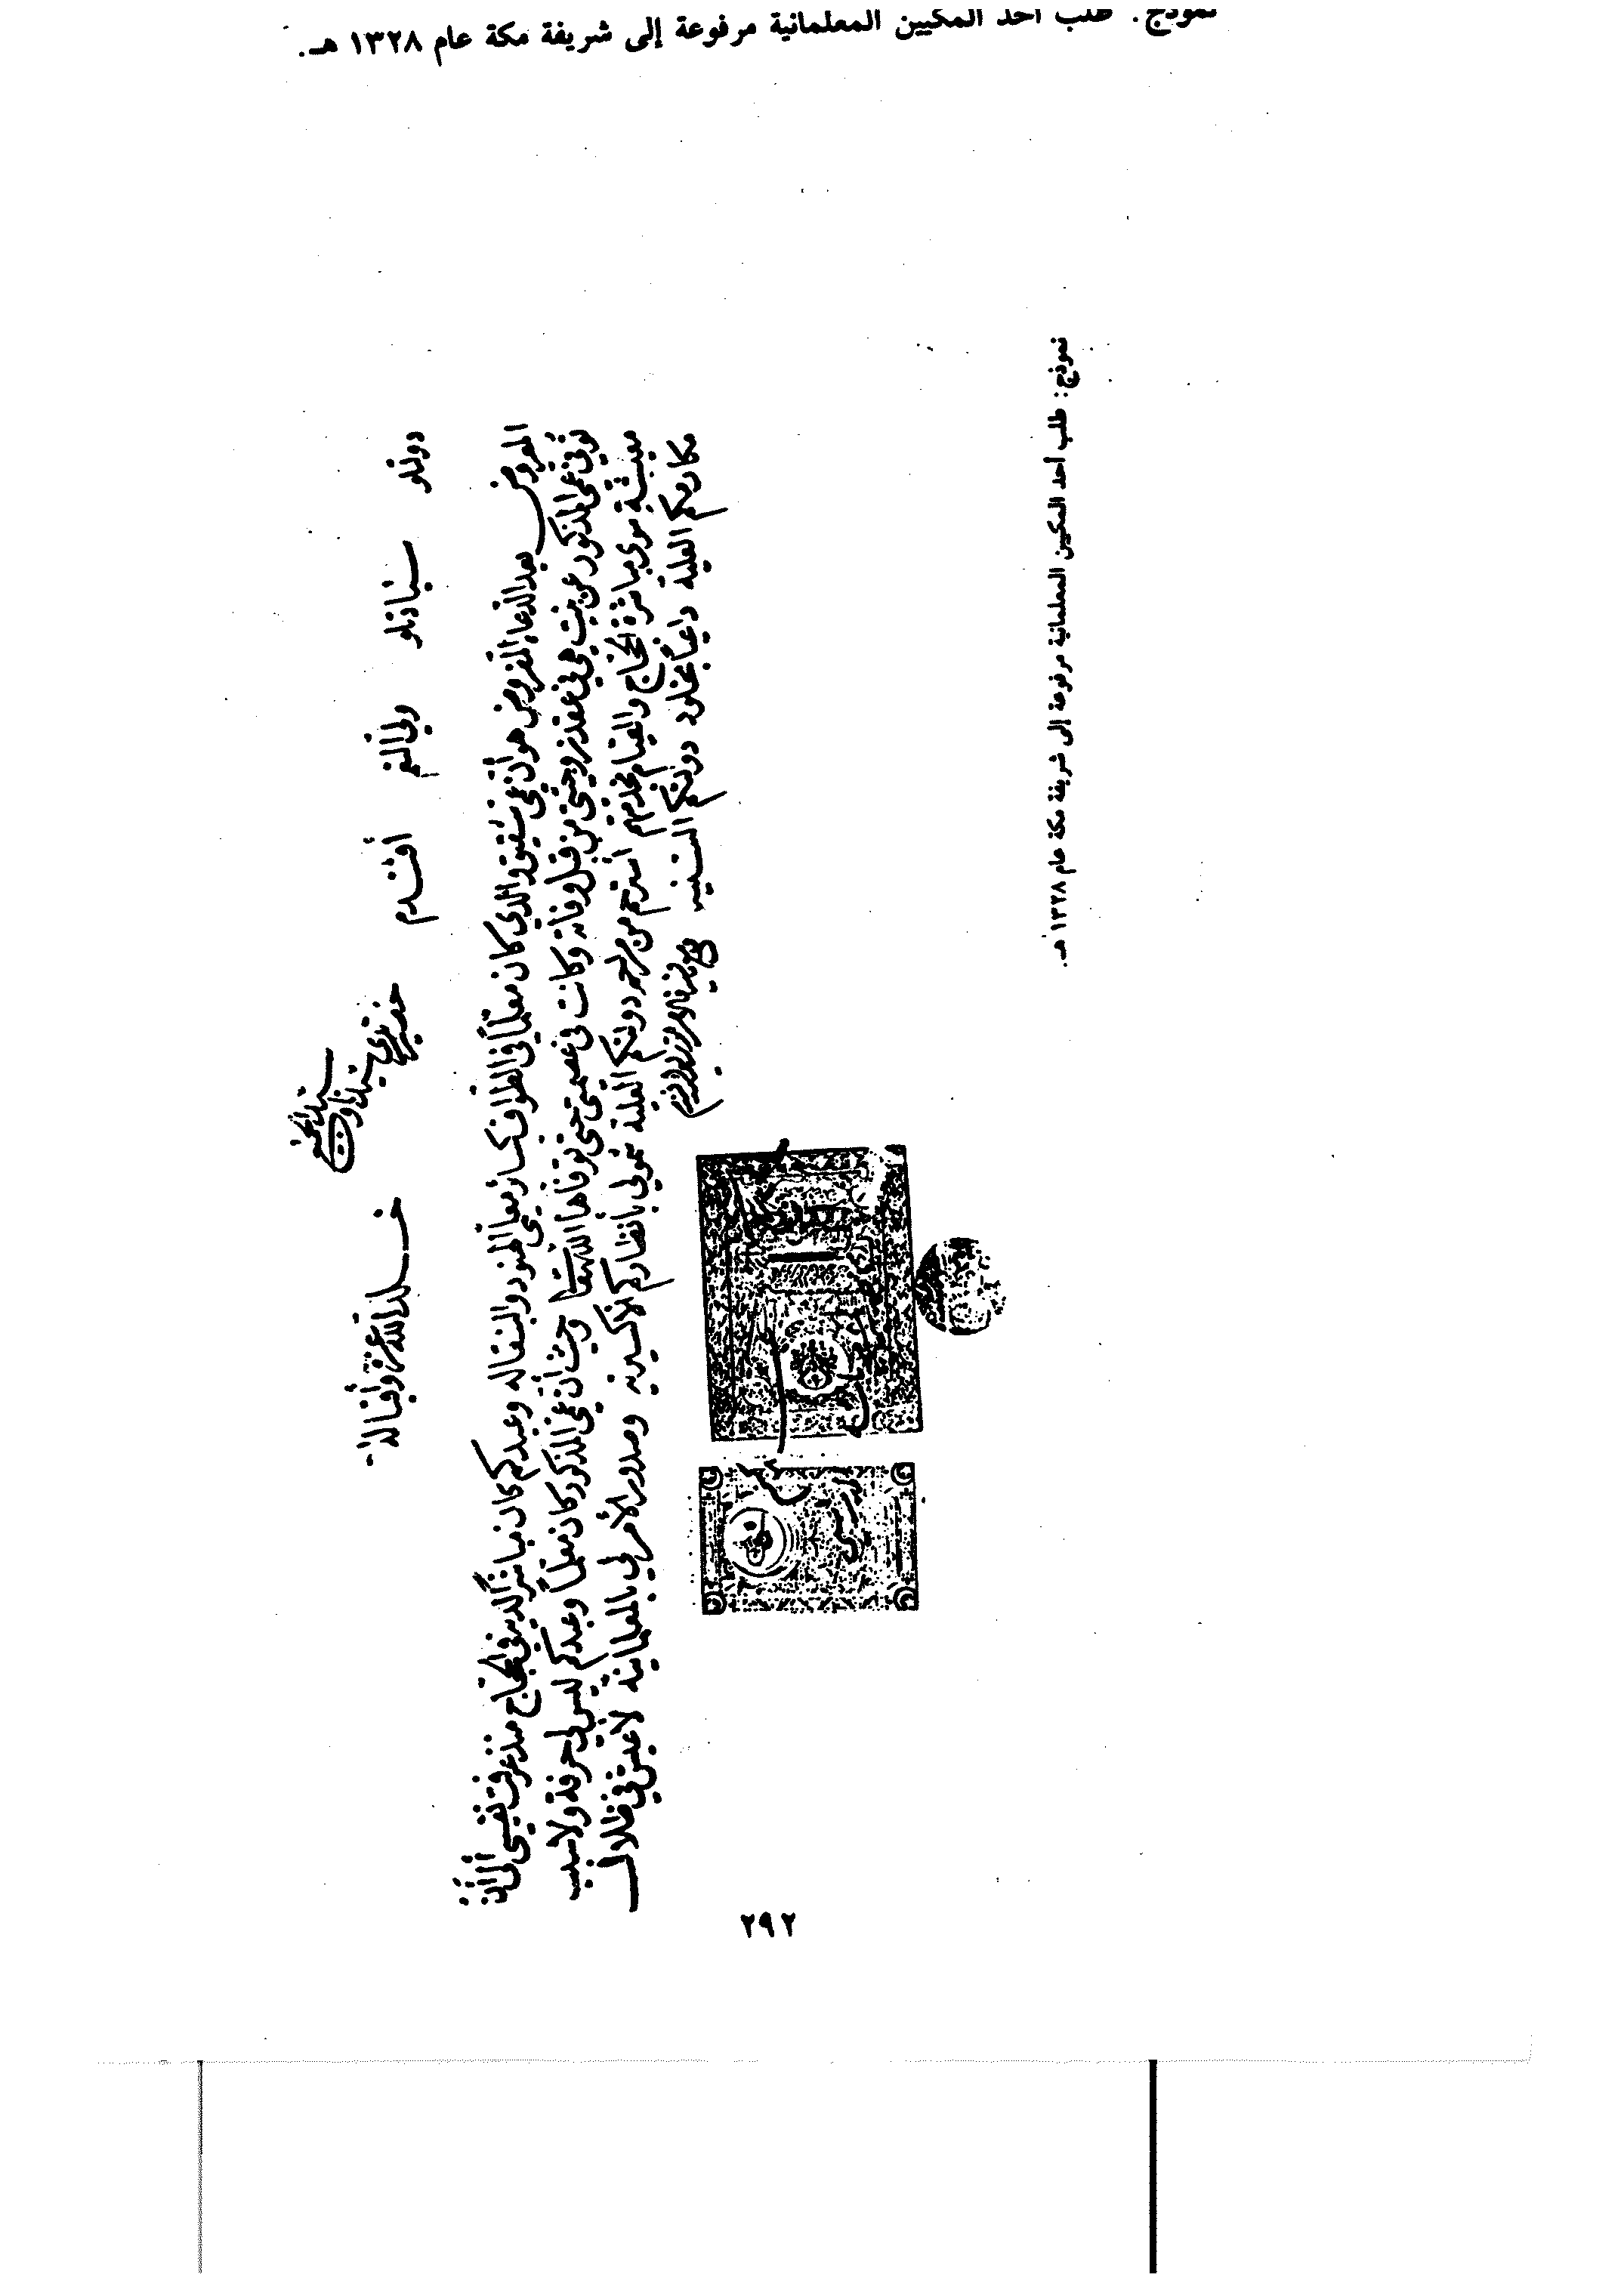 نموذج: طلب أحد المكيين المعلمانية مرفوعة إلى شريفة مكة عام ١٣٢٨ هـ.
دولتلو سيادتلو ولي النعم أفندم حضرتلري سيدنا وسيد الجميع خلد الله عزه وإقباله
المعروض بعد الدعاء المفروض هو أن عمي شقيق والدي كان معلماً في الطواف كسائر معلمي الهنود والبنقاله وعبدكم كان مباشراً لديه في الحجاج منذ عرفت نفسي إلى أن
توفي عمي المذكور عن بنت هي في عقد زوجيتي من قبل وفاته وكانت في عصمتي حتى توفاها الله تعالى وحيث أن عمي المذكور كان معلماً وعبدكم ليس لي حرفة ولا سبب
معيشة سوى مباشرة الحجاج والقيام بخدمتهم أسترحم من مراحم دولتكم العلية شمولي بأنظاركم الأكسيرية وصدور الأمر لي بالمعلمانية لأعيش في ظلال
مكارمكم العلية داعياً بخلود دولتكم السنية
نموذج: طلب أحد المكيين المعلمانية مرفوعة إلى شريفة مكة عام ١٣٢٨ هـ.
٢٩٢